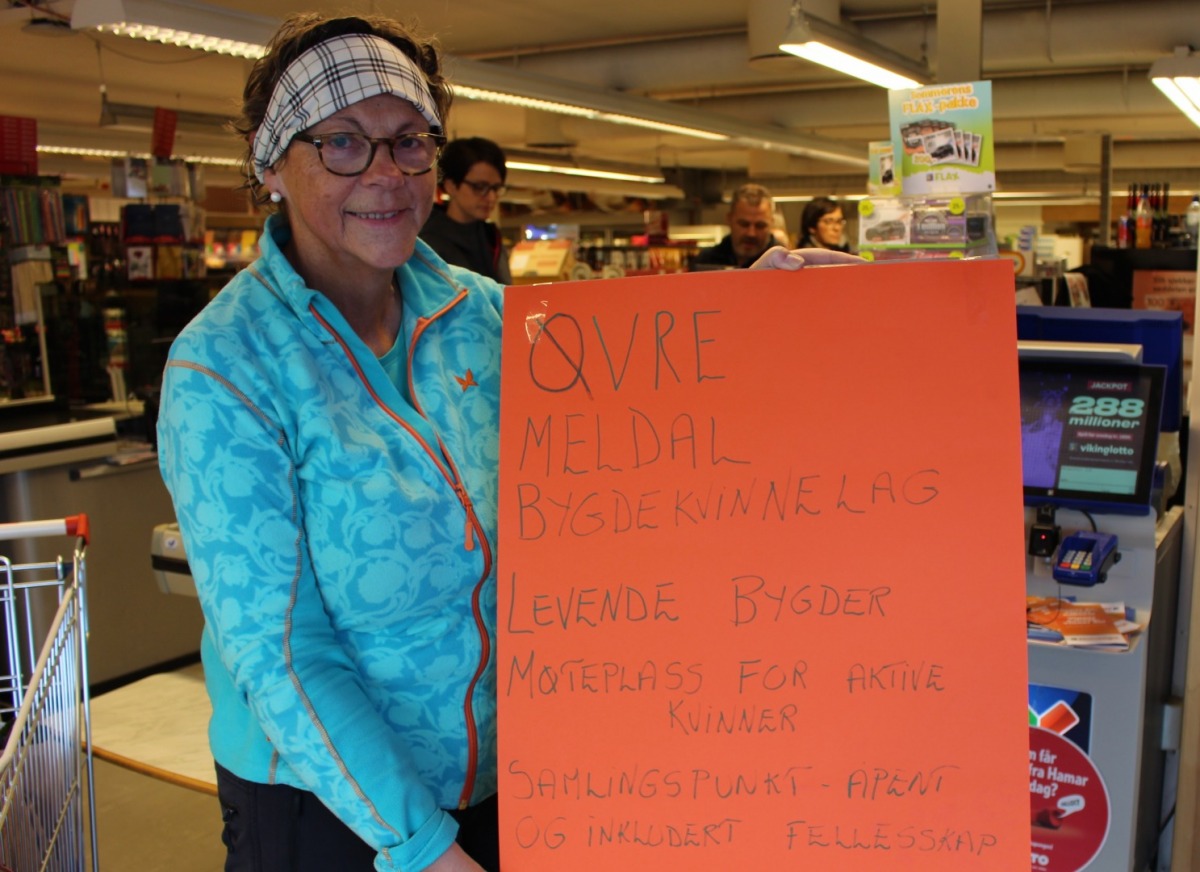 Sommerens
FLAX-pakke
FLAX
ØVRE
MELDAL
BYGDEKVINNELAG
LEVENDE BYGDER
MØTEPLASS FOR AKTIVE
KVINNER
SAMLINGSPUNKT - ÅPENT
OG INKLUDERT FELLESSKAP
JACKPOT
288
millioner
vikinglotto
får
fra Hamar
dag?